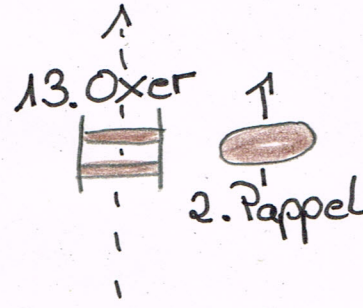 13. Oxer
2. Pappel